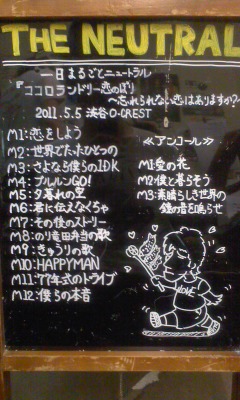 THE NEUTRAL
一日まるごとニュートラル
『ココロランドリー恋のぼり
〜忘れられない恋はありますか?〜
2011.5.5 渋谷O-CREST
M1:恋をしよう
M2:世界でたったひとつの
M3:さよなら僕らの1DK
M4:ブルルンGO!
M5:夕暮れの空
M6:君に伝えなくちゃ
M7:その後のストーリー
M8:のり竜田弁当の歌
M9:きゅうりの歌
M10:HAPPYMAN
M11:77年式のトライブ
M12:僕らの本音
≪アンコール≫
M1:愛の花
M2:僕と暮らそう
M3:素晴らしき世界の
鐘の音を鳴らせ
LOVE